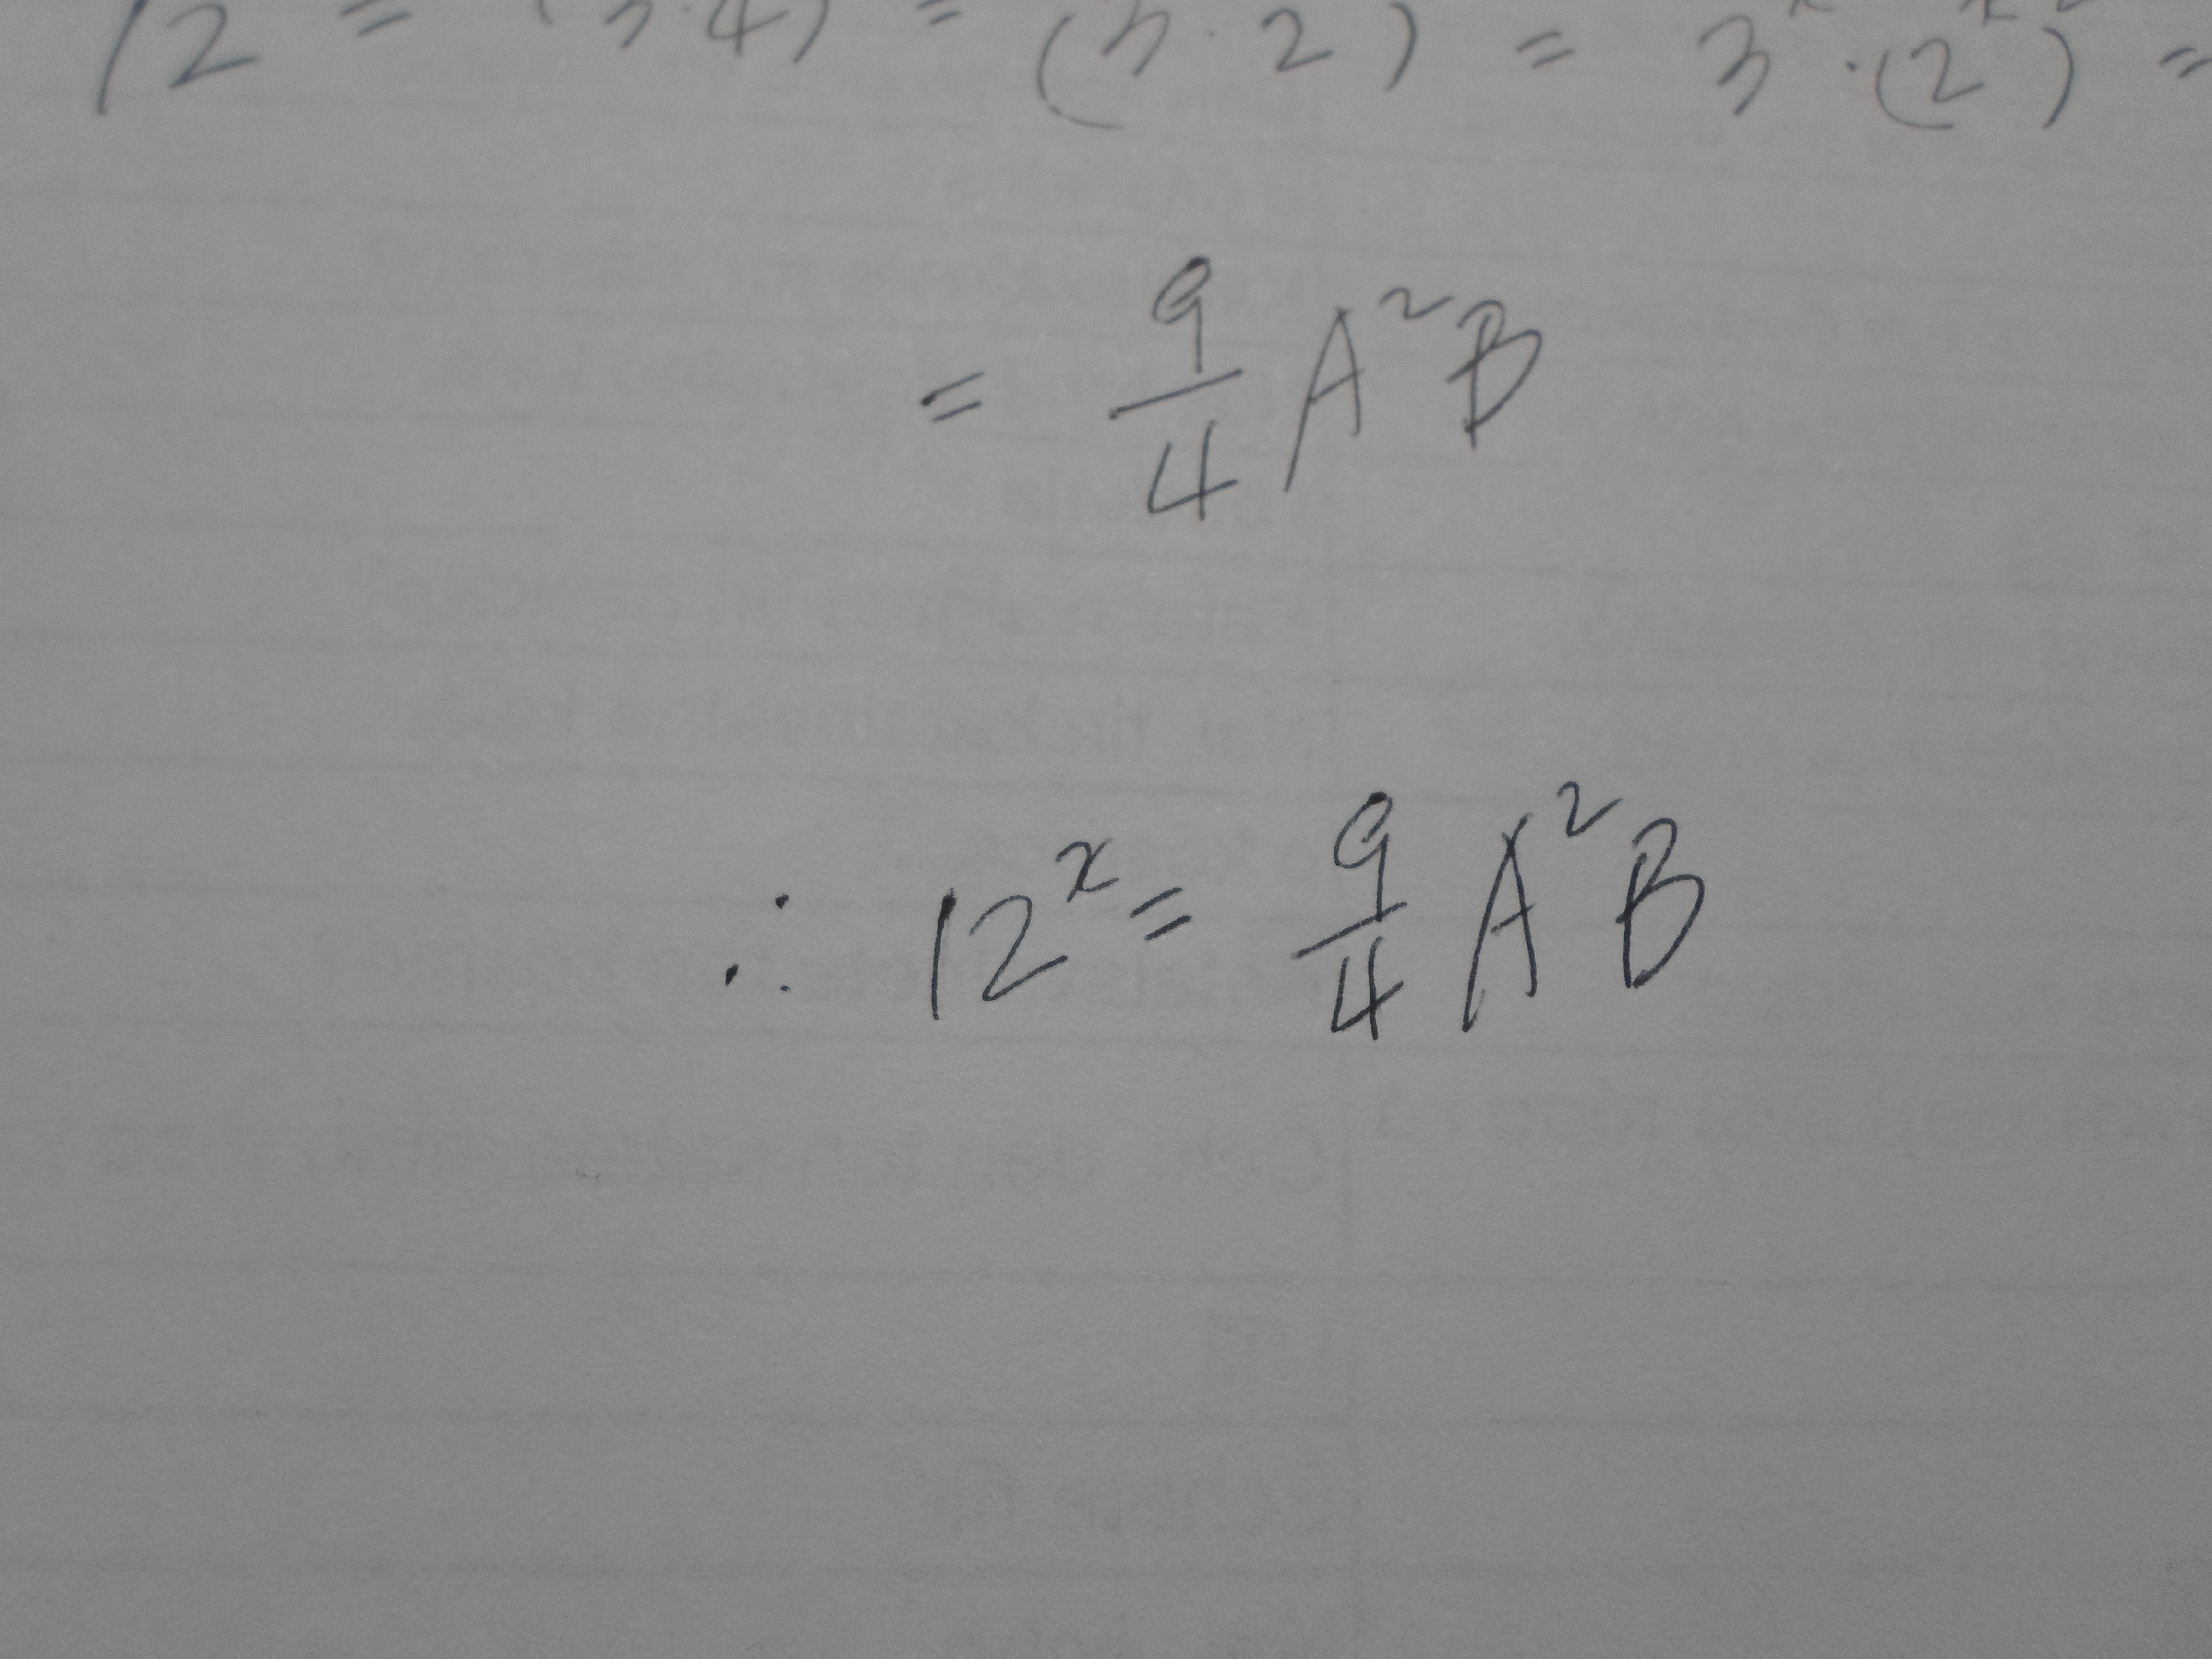 12 = (3·4) = (3·2) = 3^x·(2^x)^2 =
= 9/4 A²B
∴ 12^x = 9/4 A²B